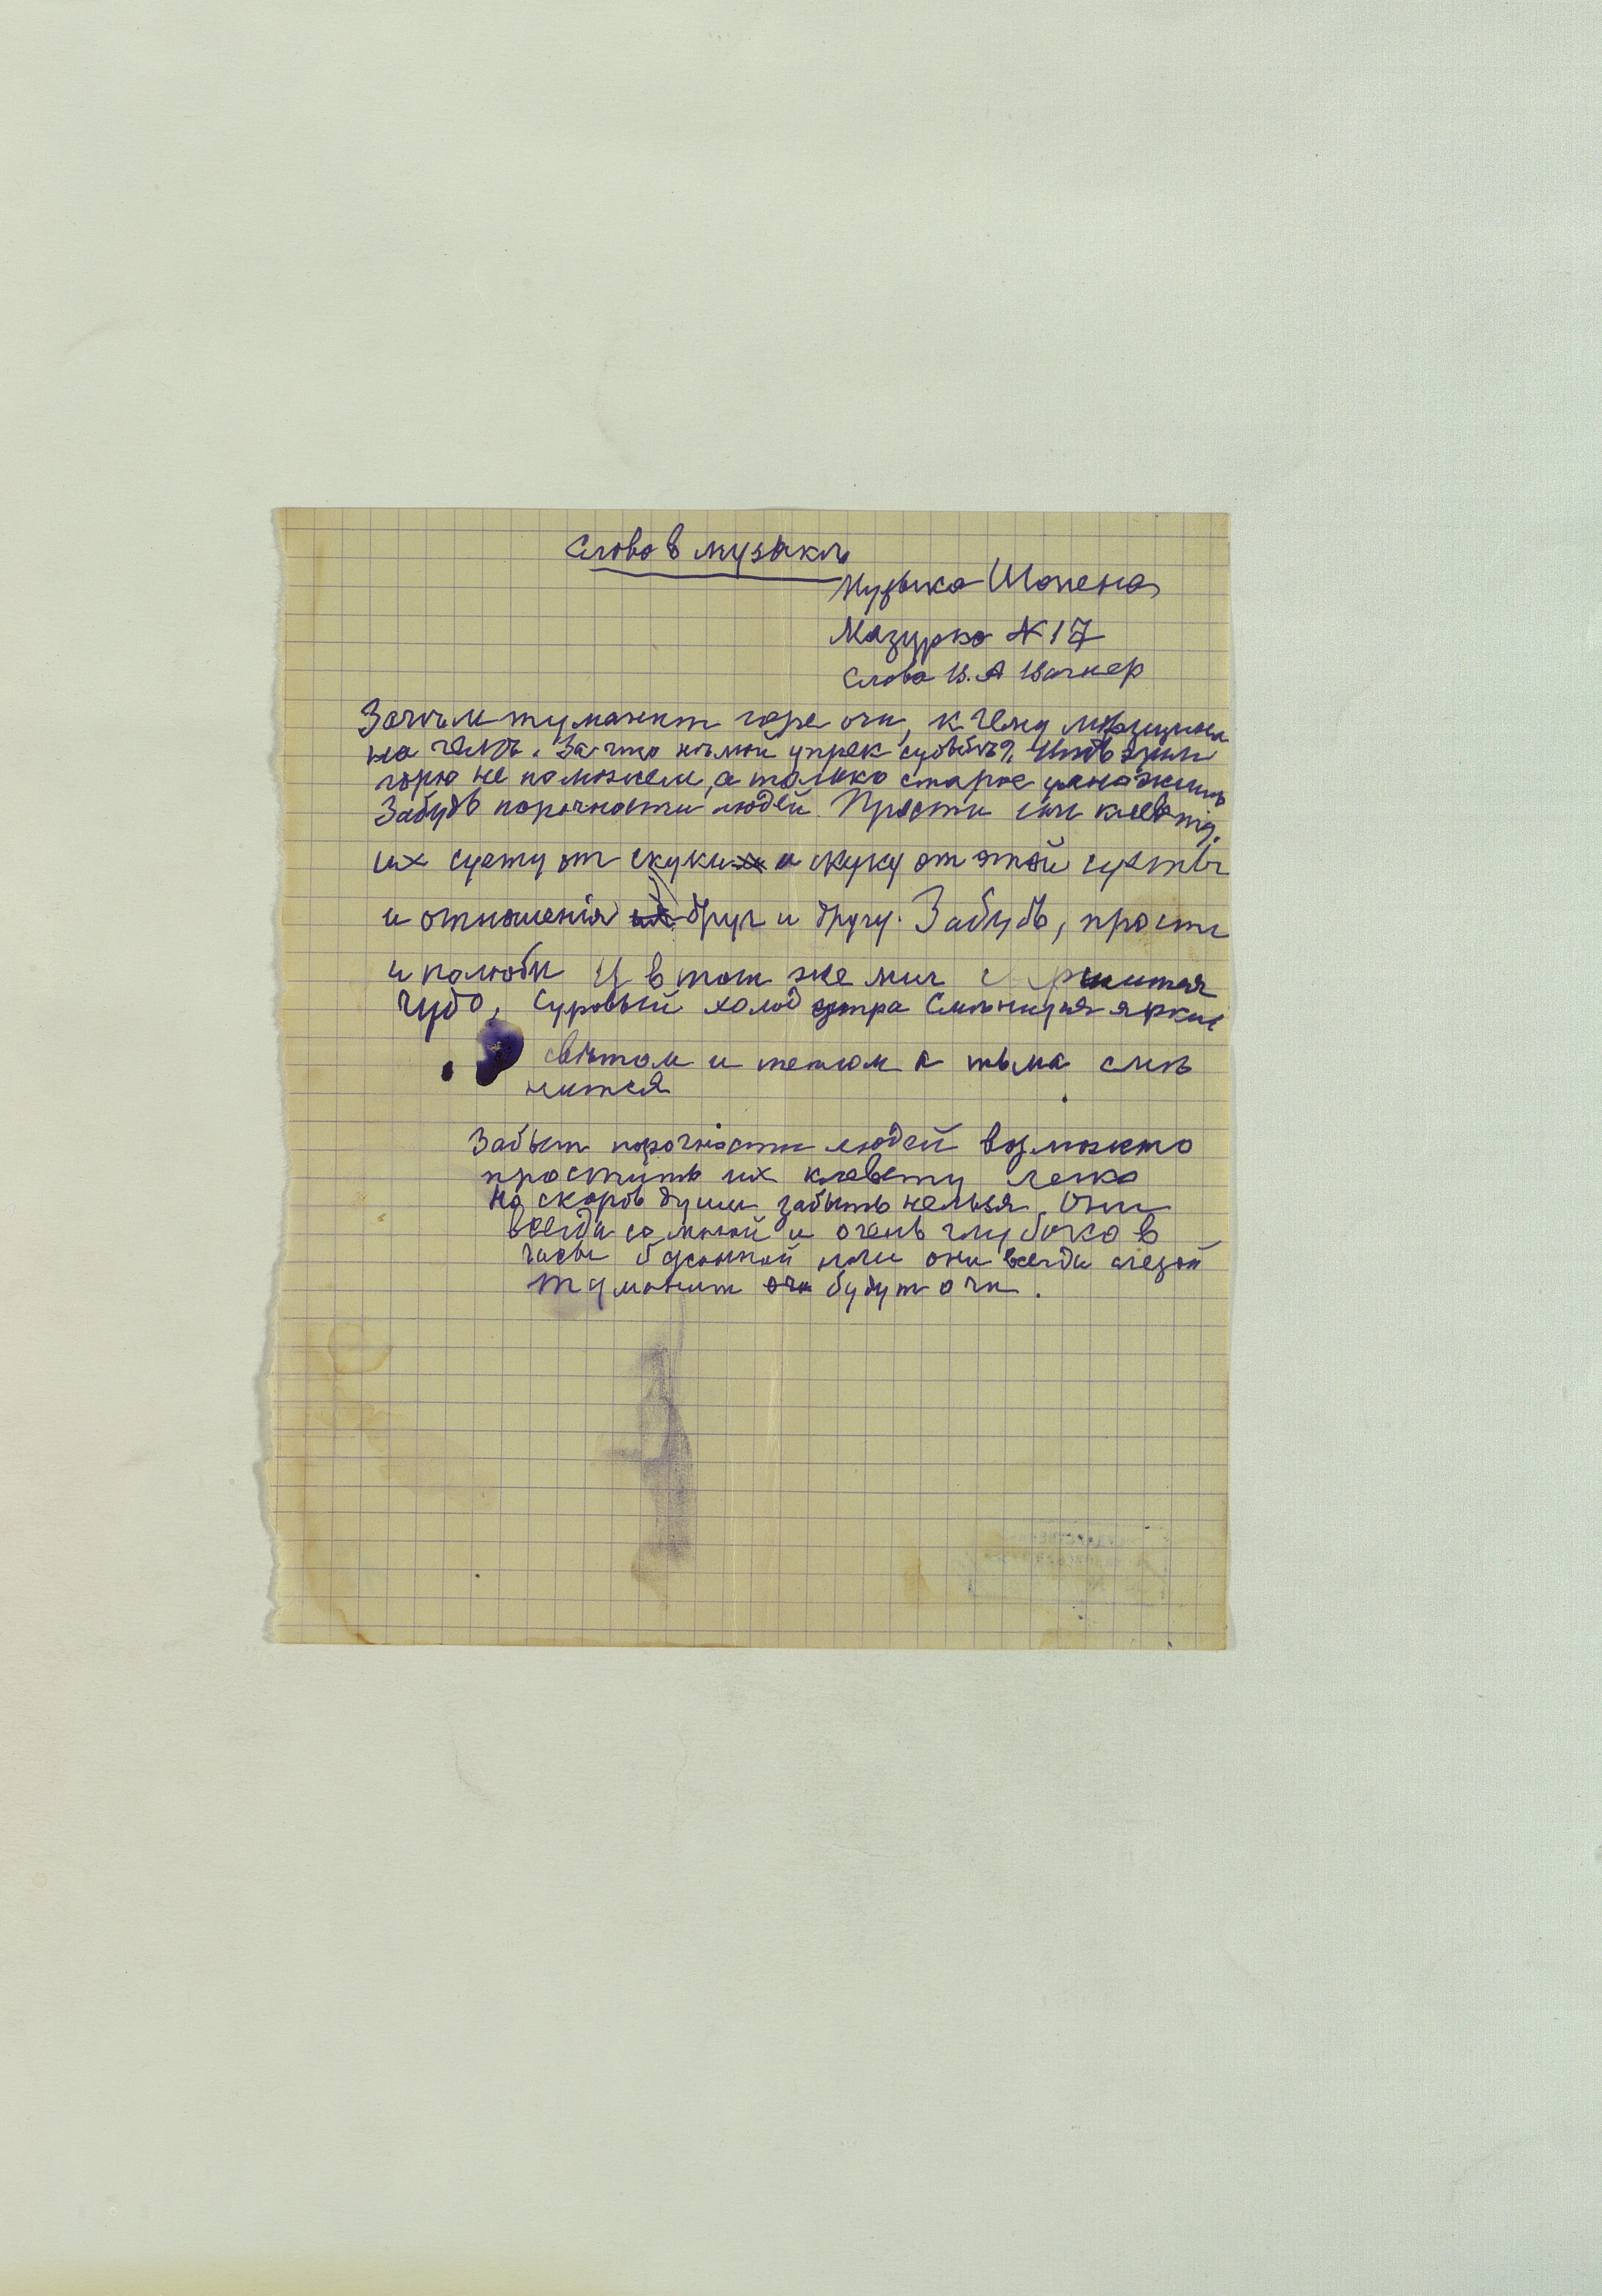 Слова в музыкѣ
Музыка Шопена
Мазурка № 17
Слова В. А Вагнер
Зачѣм туманит горе очи, к чему морщины
на челѣ. За что нѣмой упрек судьбѣ? Ты этим
горю не поможем, а только старое умножишь
Забудь порочности людей. Прости им клевету,
их суету от скуки и скуку от этой суеты
и отношенія друг и другу. Забудь, прости
и полюби И в тот же миг
чудо, суровый холод утра Смѣнится ярким
свѣтом и теплом а тьма смѣ
нится
Забыт порочности людей возможно
простить их клевету легко
но скорбь души забыть нельзя. Они
всегда со мной и очень глубоко в
часы безсонной они всегда слезой
туманит будут очи.